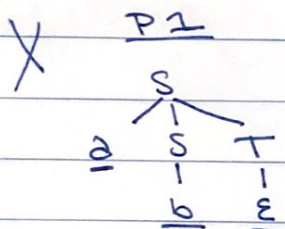 X P1
S
a S T
b ε